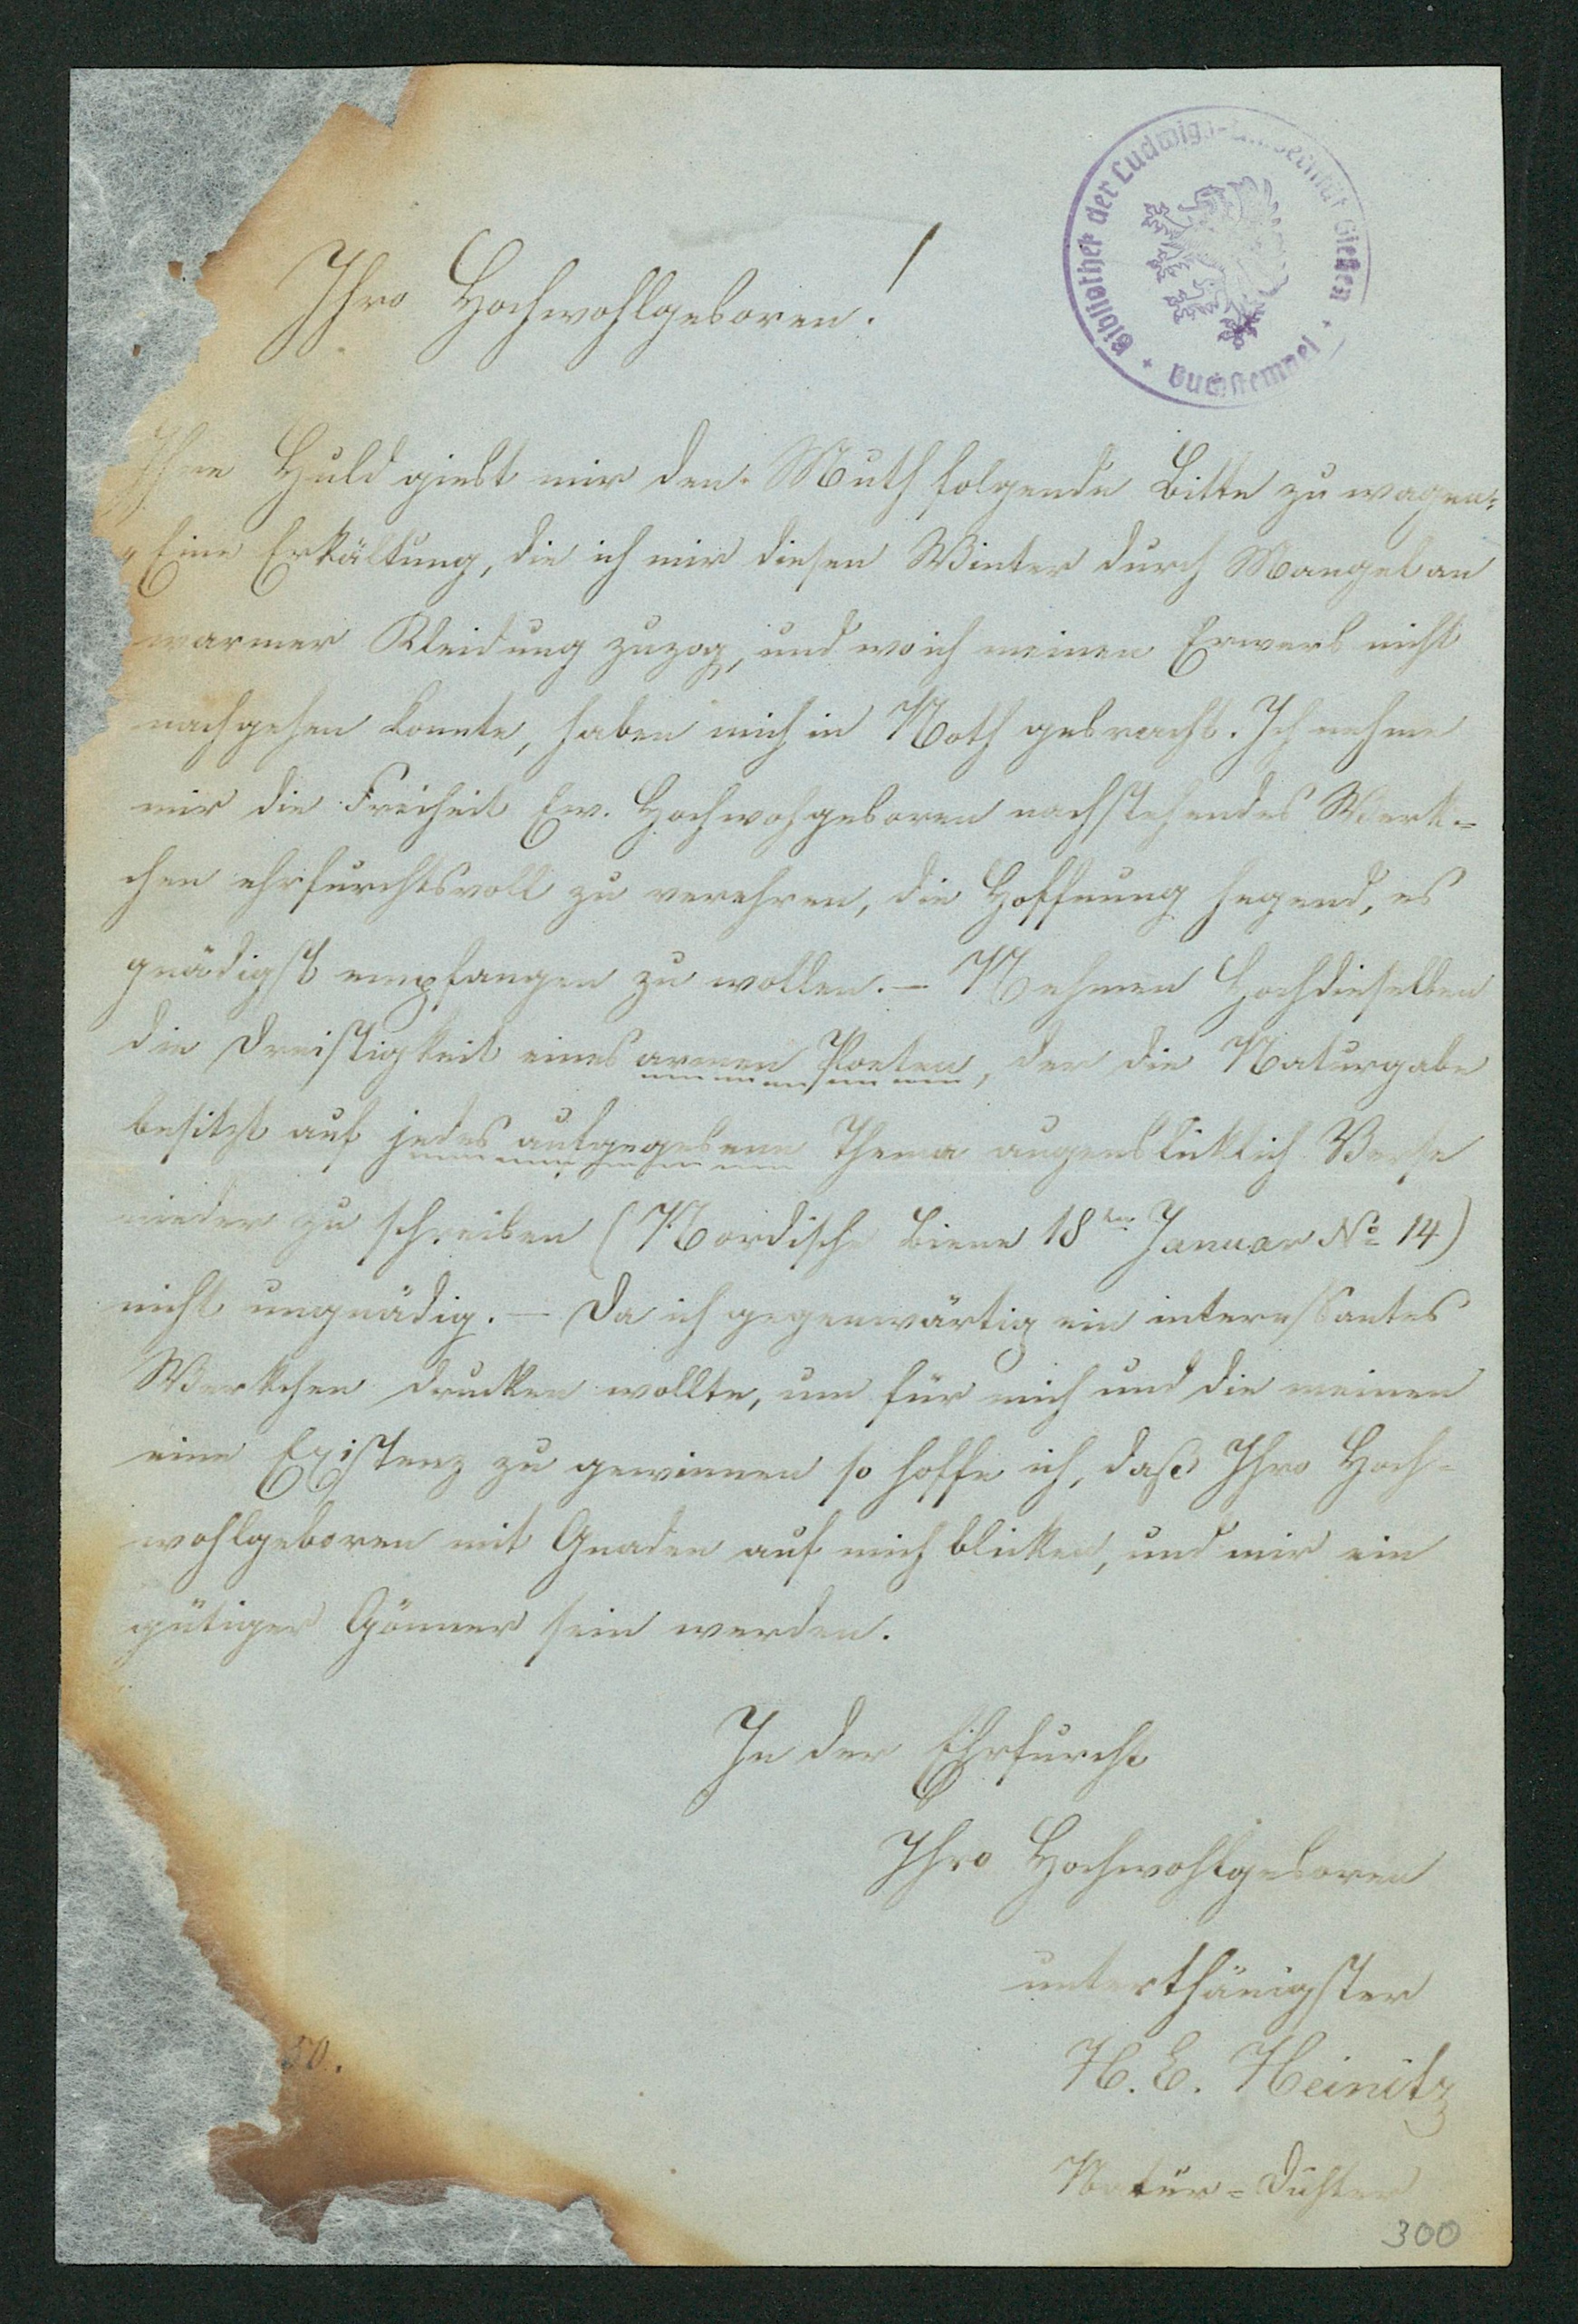 Bibliothek der Ludwigs-Universität Giessen
Buchstempel
Ihro Hochwohlgeboren!
Ihre Huld giebt mir den Muth folgende Bitte zu wagen:
„Eine Erkältung, die ich mir diesen Winter durch Mangel an
warmer Kleidung zuzog, und wo ich meinen Erwerb nicht
nachgehen konnte, haben mich in Noth gebracht. Ich nehme
mir die Freiheit Ew. Hochwohgeboren nachstehendes Werk-
chen ehrfurchtsvoll zu verehren, die Hoffnung hegend, es
gnädigst empfangen zu wollen. – Nehmen Hochdieselben
die Dreistigkeit eines armen Poeten, der die Naturgabe
besitzt auf jedes aufgegebene Thema augenbliklich Verse
nieder zu schreiben (Nordische Biene 18ten Januar No 14)
nicht ungnädig. – Da ich gegenwärtig ein interessantes
Werkchen drucken wollte, um für mich und die meinen
eine Existenz zu gewinnen so hoffe ich, daß Ihro Hoch-
wohlgeboren mit Gnaden auf mich blicken, und mir ein
gütiger Gönner sein werden.
In der Ehrfurcht
Ihro Hochwohlgeboren
unterthänigster
H. E. Heinitz
Natur-Dichter
50.
300